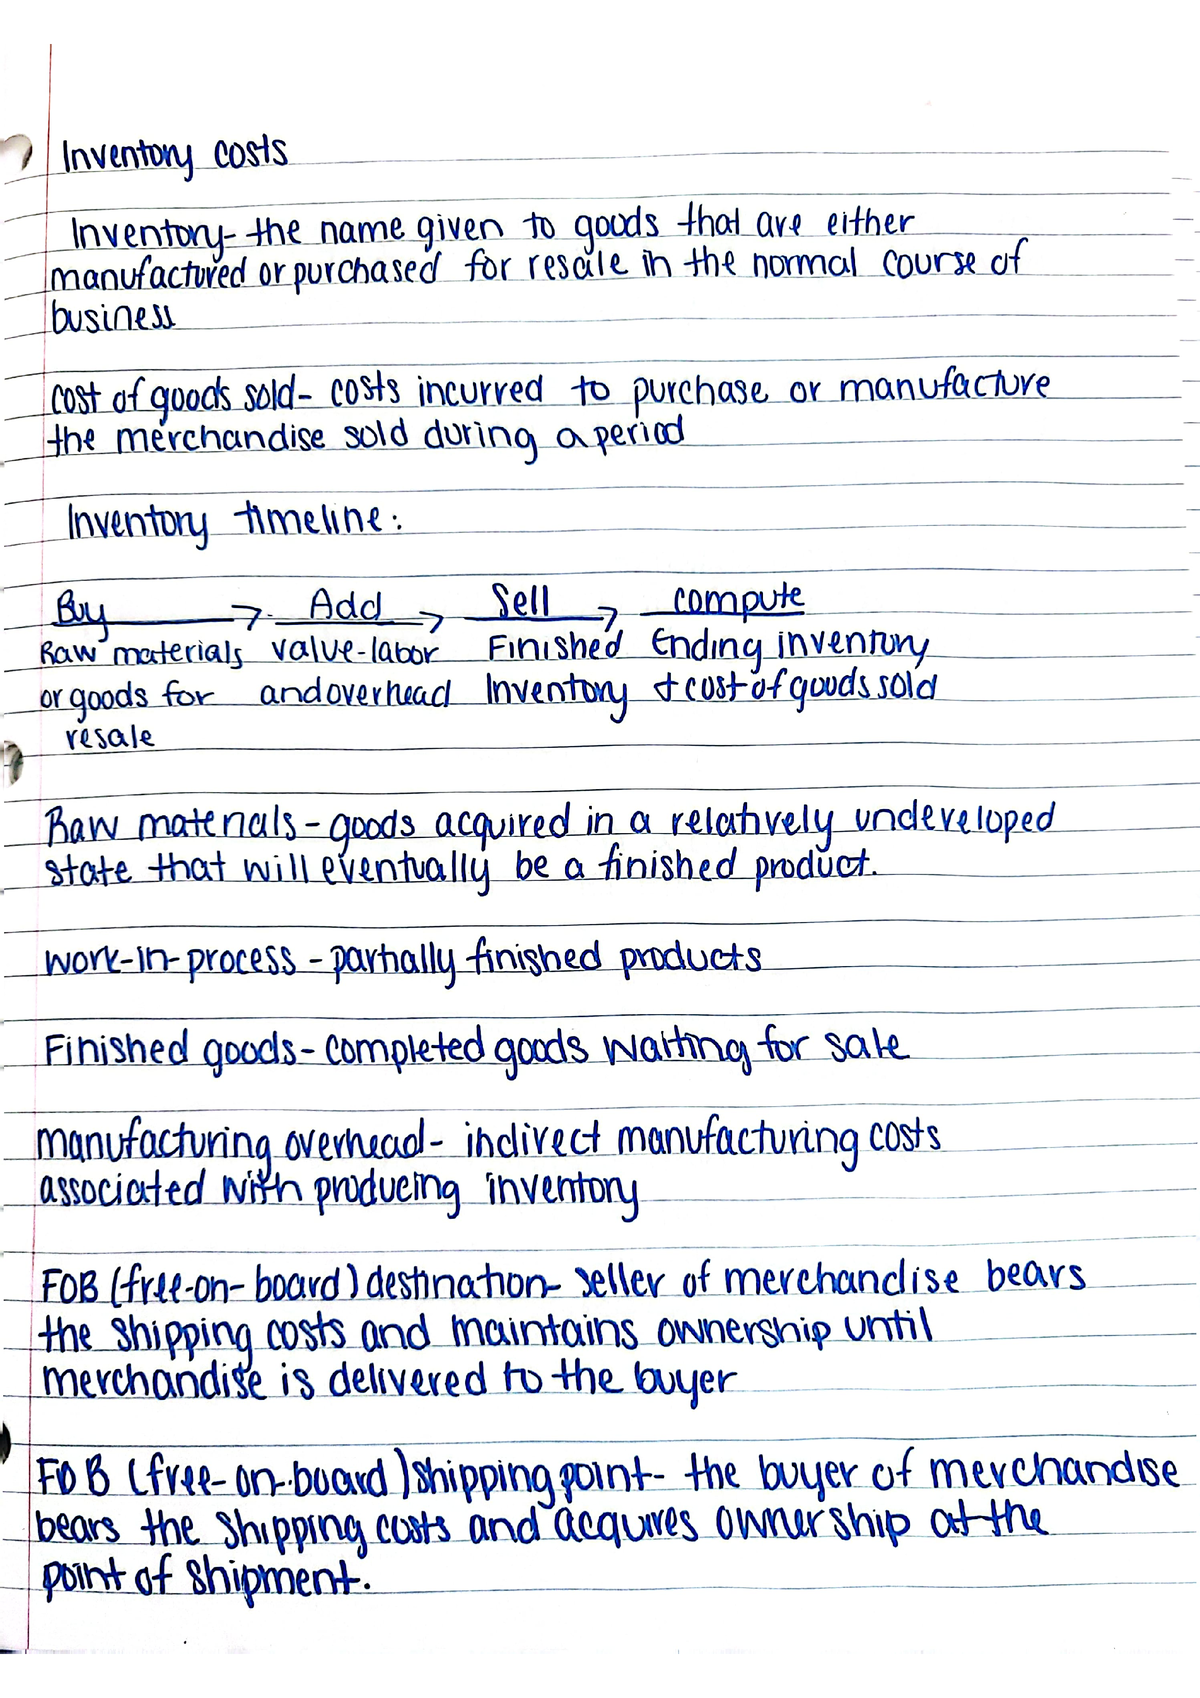 Inventory costs
Inventory- the name given to goods that are either
manufactured or purchased for resale in the normal course of
business
cost of goods sold- costs incurred to purchase or manufacture
the merchandise sold during a period
Inventory timeline:
Buy → Add → Sell → compute
Raw materials value-labor Finished Ending inventory
or goods for and overhead Inventory + cost of goods sold
resale
Raw materials - goods acquired in a relatively undeveloped
state that will eventually be a finished product.
work-in-process - partially finished products
Finished goods- completed goods waiting for sale
manufacturing overhead- indirect manufacturing costs
associated with producing inventory
FOB (free-on-board) destination- seller of merchandise bears
the shipping costs and maintains ownership until
merchandise is delivered to the buyer
FOB (free-on-board) shipping point- the buyer of merchandise
bears the shipping costs and acquires ownership at the
point of shipment.